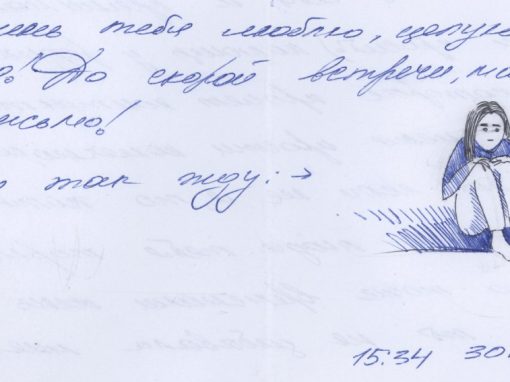 тебя люблю, целую
! До скорой встречи,
письмо!
так жду: →
15.34 30